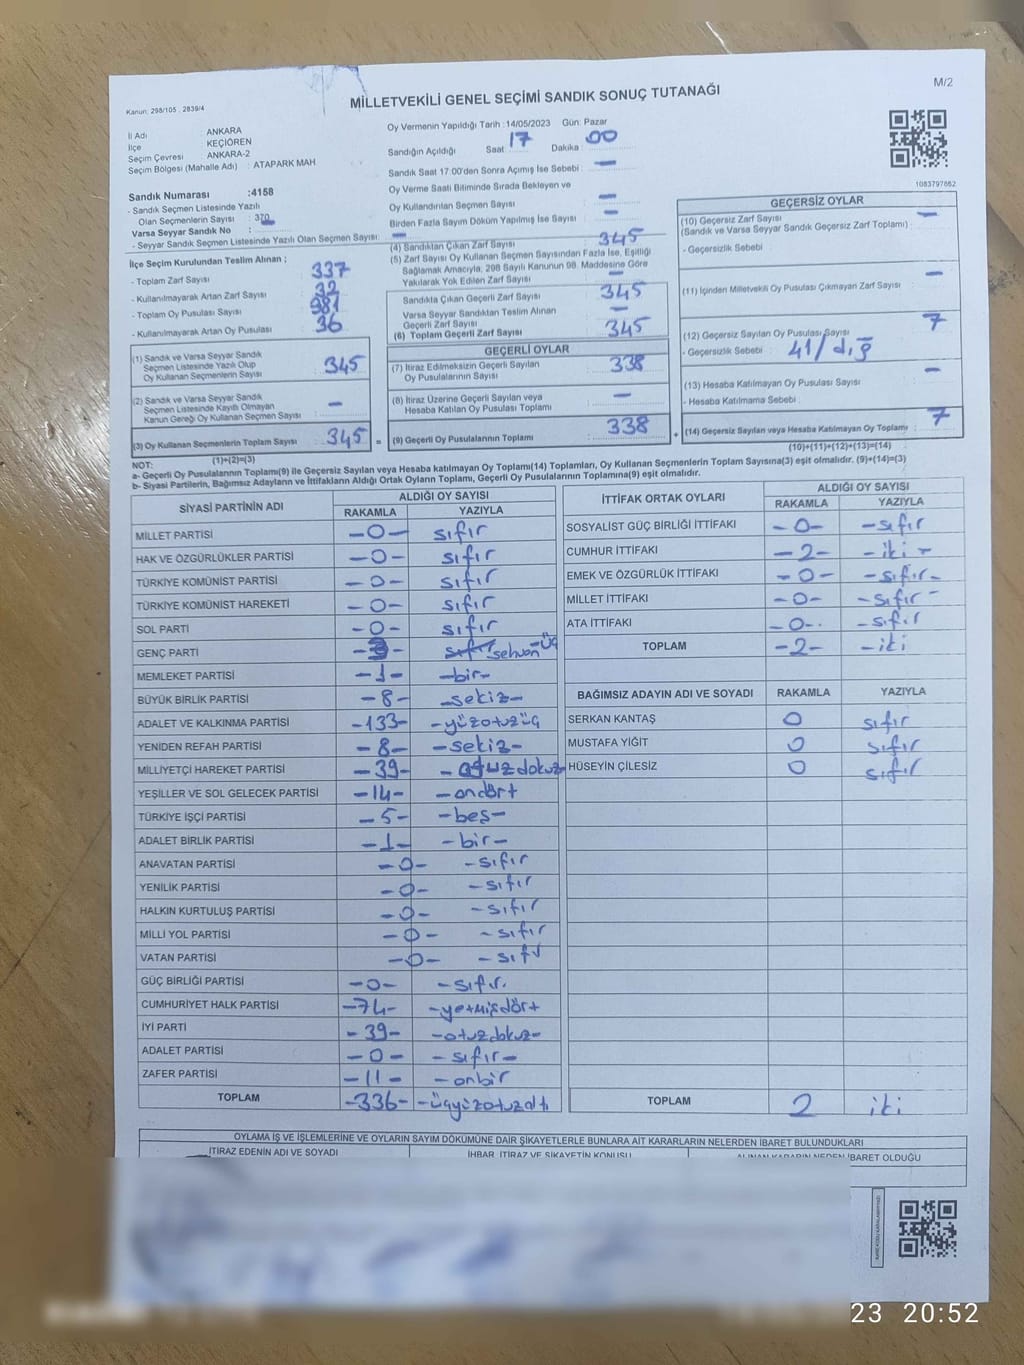 Kanun: 298/105 , 2839/4
MİLLETVEKİLİ GENEL SEÇİMİ SANDIK SONUÇ TUTANAĞI
M/2
İl Adı ANKARA
İlçe KEÇİÖREN
Seçim Çevresi ANKARA-2
Seçim Bölgesi (Mahalle Adı) : ATAPARK MAH
Sandık Numarası :4158
- Sandık Seçmen Listesinde Yazılı
Olan Seçmenlerin Sayısı : 370
Varsa Seyyar Sandık No :
- Seyyar Sandık Seçmen Listesinde Yazılı Olan Seçmen Sayısı: —
Oy Vermenin Yapıldığı Tarih : 14/05/2023 Gün: Pazar
Sandığın Açıldığı Saat 17 Dakika : 00
Sandık Saat 17.00'den Sonra Açımış İse Sebebi : —
Oy Verme Saati Bitiminde Sırada Bekleyen ve
Oy Kullandırılan Seçmen Sayısı : —
Birden Fazla Sayım Döküm Yapılmış İse Sayısı : —
1083797862
İlçe Seçim Kurulundan Teslim Alınan ;
- Toplam Zarf Sayısı : 337
- Kullanılmayarak Artan Zarf Sayısı : 32
- Toplam Oy Pusulası Sayısı : 381
- Kullanılmayarak Artan Oy Pusulası : 36
(1) Sandık ve Varsa Seyyar Sandık
Seçmen Listesinde Yazılı Olup
Oy Kullanan Seçmenlerin Sayısı : 345
(2) Sandık ve Varsa Seyyar Sandık
Seçmen Listesinde Kayıtlı Olmayan
Kanun Gereği Oy Kullanan Seçmen Sayısı : —
(3) Oy Kullanan Seçmenlerin Toplam Sayısı : 345 =
(1)+(2)=(3)
(4) Sandıktan Çıkan Zarf Sayısı : 345
(5) Zarf Sayısı Oy Kullanan Seçmen Sayısından Fazla İse, Eşitliği
Sağlamak Amacıyla; 298 Sayılı Kanunun 98. Maddesine Göre
Yakılarak Yok Edilen Zarf Sayısı : —
Sandıkta Çıkan Geçerli Zarf Sayısı : 345
Varsa Seyyar Sandıktan Teslim Alınan
Geçerli Zarf Sayısı : —
(6) Toplam Geçerli Zarf Sayısı : 345
GEÇERLİ OYLAR
(7) İtiraz Edilmeksizin Geçerli Sayılan
Oy Pusulalarının Sayısı : 338
(8) İtiraz Üzerine Geçerli Sayılan veya
Hesaba Katılan Oy Pusulası Toplamı : —
(9) Geçerli Oy Pusulalarının Toplamı : 338 +
GEÇERSİZ OYLAR
(10) Geçersiz Zarf Sayısı
(Sandık ve Varsa Seyyar Sandık Geçersiz Zarf Toplamı) : —
- Geçersizlik Sebebi :
(11) İçinden Milletvekili Oy Pusulası Çıkmayan Zarf Sayısı : —
(12) Geçersiz Sayılan Oy Pusulası Sayısı 7
- Geçersizlik Sebebi : 41/dığ
(13) Hesaba Katılmayan Oy Pusulası Sayısı —
- Hesaba Katılmama Sebebi :
(14) Geçersiz Sayılan veya Hesaba Katılmayan Oy Toplamı : 7
(10)+(11)+(12)+(13)=(14)
NOT:
a- Geçerli Oy Pusulalarının Toplamı(9) ile Geçersiz Sayılan veya Hesaba katılmayan Oy Toplamı(14) Toplamları, Oy Kullanan Seçmenlerin Toplam Sayısına(3) eşit olmalıdır. (9)+(14)=(3)
b- Siyasi Partilerin, Bağımsız Adayların ve İttifakların Aldığı Ortak Oyların Toplamı, Geçerli Oy Pusulalarının Toplamına(9) eşit olmalıdır.
SİYASİ PARTİNİN ADI ALDIĞI OY SAYISI
RAKAMLA YAZIYLA
MİLLET PARTİSİ -0- sıfır
HAK VE ÖZGÜRLÜKLER PARTİSİ -0- sıfır
TÜRKİYE KOMÜNİST PARTİSİ -0- sıfır
TÜRKİYE KOMÜNİST HAREKETİ -0- sıfır
SOL PARTİ -0- sıfır
GENÇ PARTİ -3- sıfır sehven -üç
MEMLEKET PARTİSİ -1- -bir-
BÜYÜK BİRLİK PARTİSİ -8- -sekiz-
ADALET VE KALKINMA PARTİSİ -133- -yüzotuzüç
YENİDEN REFAH PARTİSİ -8- -sekiz-
MİLLİYETÇİ HAREKET PARTİSİ -39- -otuzdokuz
YEŞİLLER VE SOL GELECEK PARTİSİ -14- -ondört
TÜRKİYE İŞÇİ PARTİSİ -5- -beş-
ADALET BİRLİK PARTİSİ -1- -bir-
ANAVATAN PARTİSİ -0- -sıfır
YENİLİK PARTİSİ -0- -sıfır
HALKIN KURTULUŞ PARTİSİ -0- -sıfır
MİLLİ YOL PARTİSİ -0- -sıfır
VATAN PARTİSİ -0- -sıfır
GÜÇ BİRLİĞİ PARTİSİ -0- -sıfır.
CUMHURİYET HALK PARTİSİ -74- -yetmişdört
İYİ PARTİ -39- -otuzdokuz-
ADALET PARTİSİ -0- -sıfır-
ZAFER PARTİSİ -11- -onbir
TOPLAM -336- -üçyüzotuzaltı
İTTİFAK ORTAK OYLARI ALDIĞI OY SAYISI
RAKAMLA YAZIYLA
SOSYALİST GÜÇ BİRLİĞİ İTTİFAKI -0- -sıfır
CUMHUR İTTİFAKI -2- -iki-
EMEK VE ÖZGÜRLÜK İTTİFAKI -0- -sıfır-
MİLLET İTTİFAKI -0- -sıfır-
ATA İTTİFAKI -0- -sıfır
TOPLAM -2- -iki
BAĞIMSIZ ADAYIN ADI VE SOYADI RAKAMLA YAZIYLA
SERKAN KANTAŞ 0 sıfır
MUSTAFA YİĞİT 0 sıfır
HÜSEYİN ÇİLESİZ 0 sıfır
TOPLAM 2 iki
OYLAMA İŞ VE İŞLEMLERİNE VE OYLARIN SAYIM DÖKÜMÜNE DAİR ŞİKAYETLERLE BUNLARA AİT KARARLARIN NELERDEN İBARET BULUNDUKLARI
İTİRAZ EDENİN ADI VE SOYADI İHBAR, İTİRAZ VE ŞİKAYETİN KONUSU ALINAN KARARIN NEDEN İBARET OLDUĞU
23 20:52